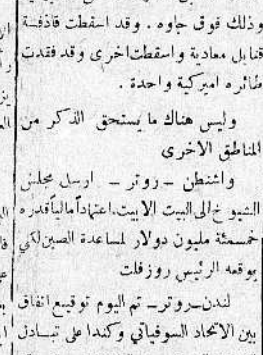 وذلك فوق جاوه . وقد اسقطت قاذفة
قنابل معادية واسقطت اخرى وقد فقدت
طائره اميركية واحدة .
وليس هناك ما يستحق الذكر من
المناطق الاخرى
واشنطن – روتر – ارسل مجلس
الشيوخ الى البيت الابيت اعتماداً مالياً قدره
خمسمئة مليون دولار لمساعدة الصين لكي
يوقعه الرئيس روزفلت
لندن – روتر – تم اليوم توقيع اتفاق
بين الاتحاد السوفياتي وكندا على تبادل